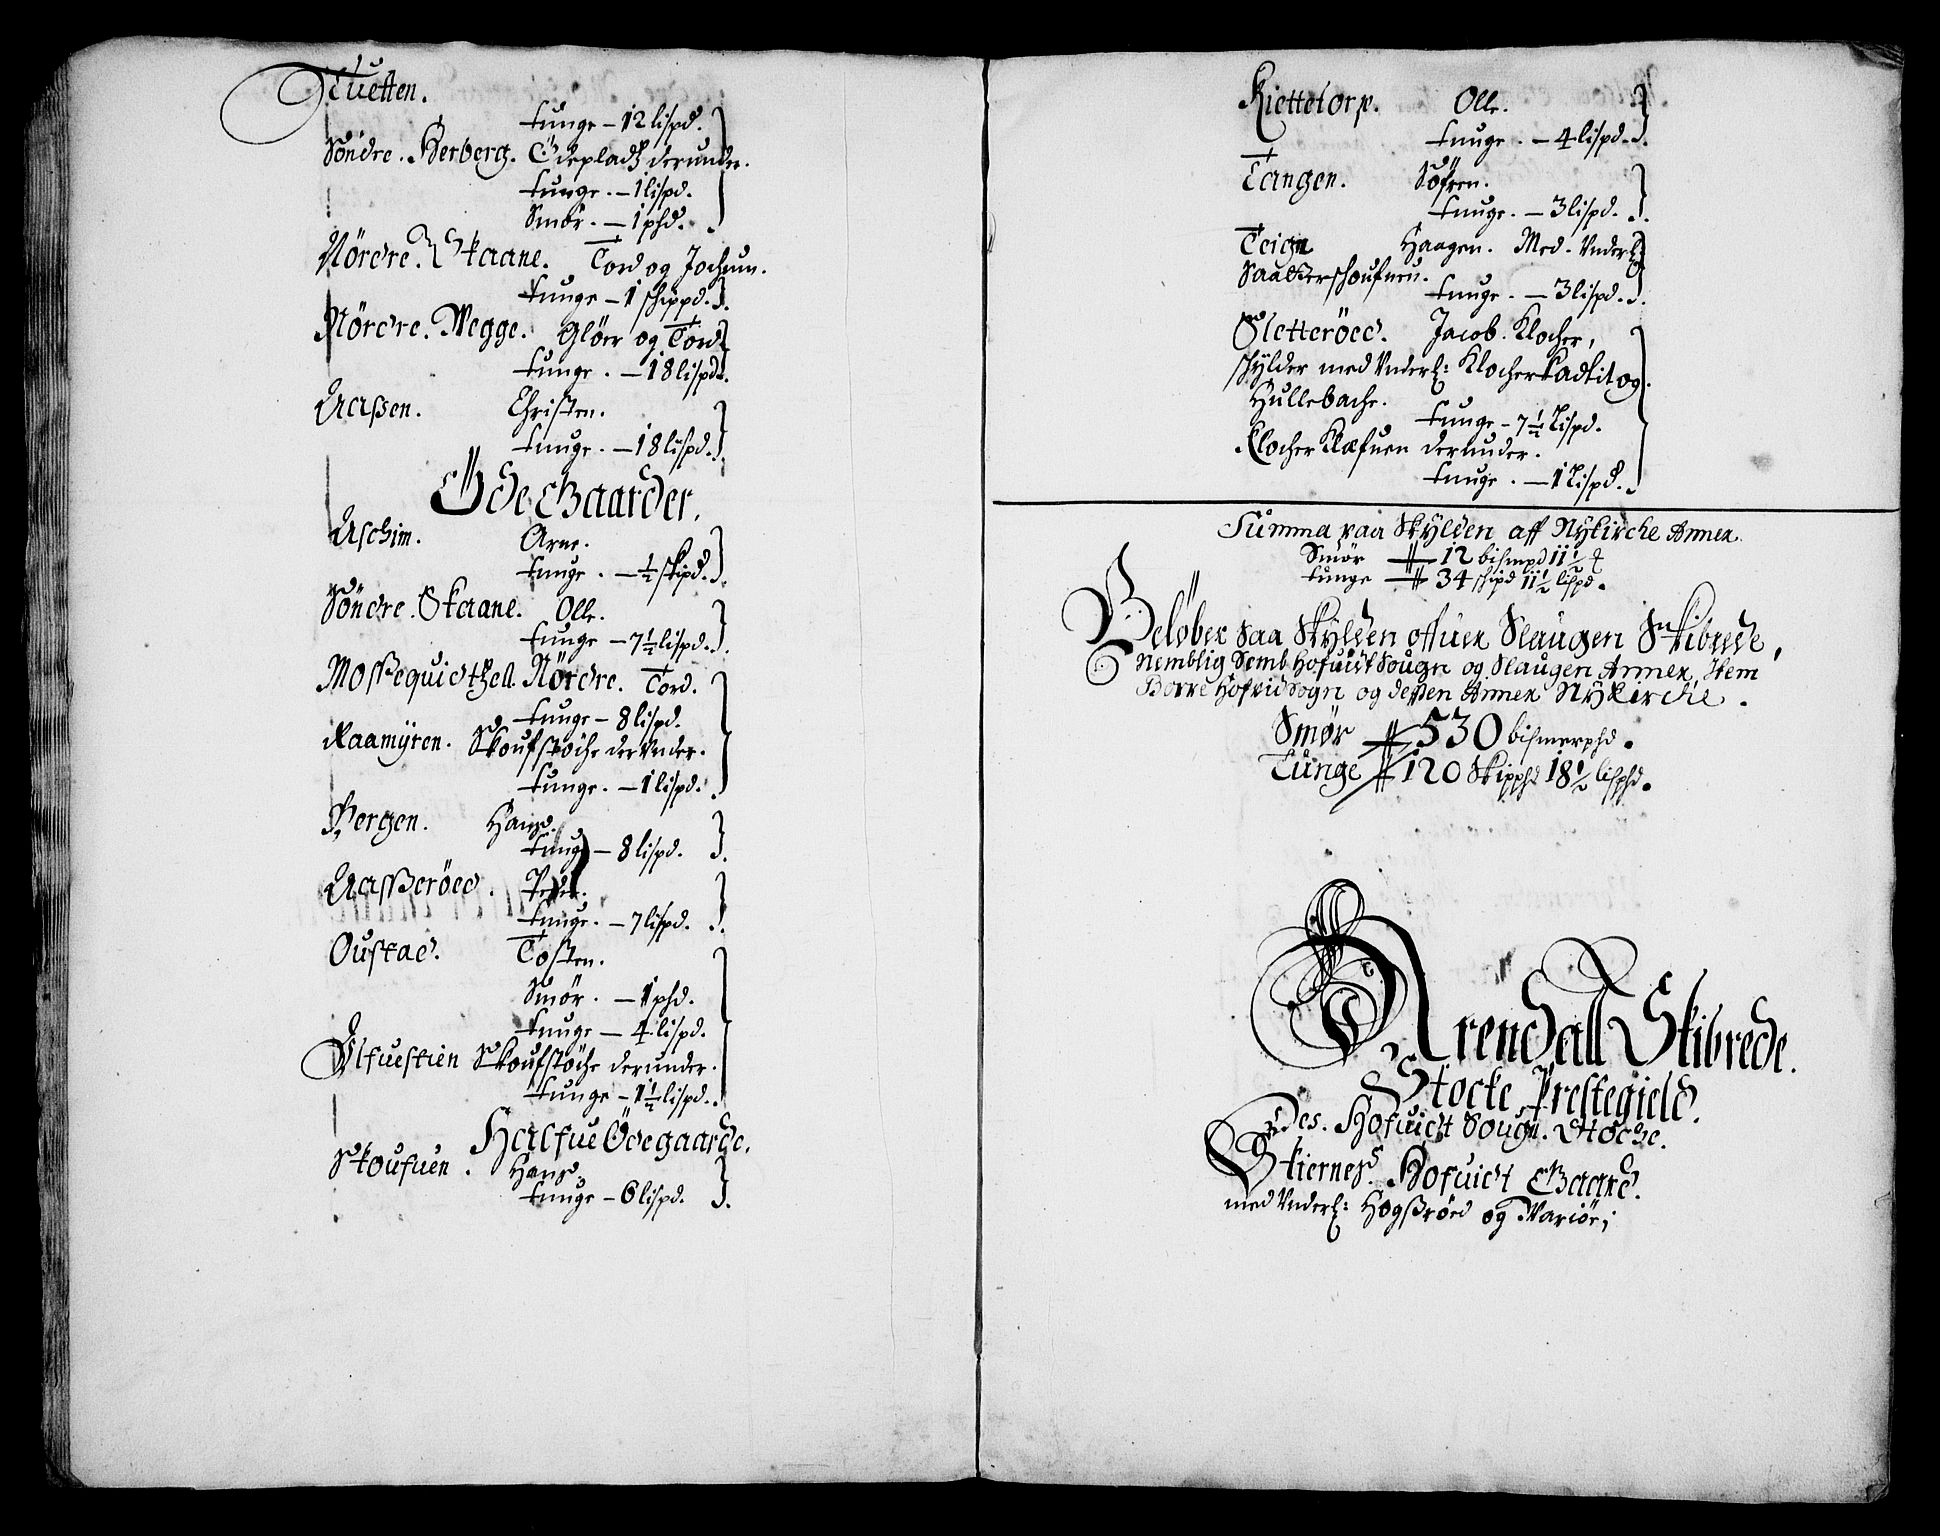 Tuetten.
tunge – 12 lispd.
Söndre. Berberg. Ödepladtz derunder.
tunge. – 1 lispd.
Smör. – 1 phd.
Nördre. Skaane. Tord og Jochum.
tunge – 1 schippd.
Nördre. Wegge. Glöer og Tord
tunge. – 18 lispd.
Aaßen. Christen.
tunge. – 18 lispd.
Öde Gaarder.
Aschim. Arne.
tunge. – ½ skipd.
Söndre. Skaane. Olle.
tunge – 7½ lispd.
Moßequidthell. Nördre. Tord.
tunge – 8 lispd.
Raamÿren. Skoufstöche der Vnder.
tunge. – 1 lispd.
Bergen. Hans.
tunge – 8 lispd.
Aaßeröed. Peder.
tunge. – 7 lispd.
Oustad. Tosten.
Smör. – 1 phd.
tunge – 4 lispd.
Ulfuestien Skoufstöche derunder.
tunge – 1½ lispd.
Halfue Ödegaarde.
Skoufuen. Hans.
tunge – 6 lispd.
Kiettetorp. Olle.
tunge. – 4 lispd.
Tangen. Söfren.
tunge. – 3 lispd.
Teign Haagen. Med. Vnderl:
Saatterschoufuen.
tunge. – 3 lispd.
Sletteröed. Jacob. Klocher,
schÿlder med Vnderl: Klocher og
Hullebache.
tunge – 7½ Lispd.
Klocher Klæfuen derunder.
tunge. – 1 Lispd.
Summa paa Skÿlden aff Nÿkirche Annex.
Smör – 12 bismpd 11½
tunge – 34 skipd 11½ lispd.
Beløber saa Skÿlden offuer Slaugen Skibrede,
Nemblig Semb Hofuidt Sougn og Slaugen Annex, Item
Borre Hofvid Sogn og dessen Annex Nÿkirche.
Smør 530 bismerphd.
Tunge 120 Skipphd 18½ lisphd.
Arendall Skibrede.
Stocke Prestegield.
Des. Hofuidt Sougn. Stoche.
Skiernes. Hofuidt Gaard.
med Vnderl: Hogßröed og Wariöe;